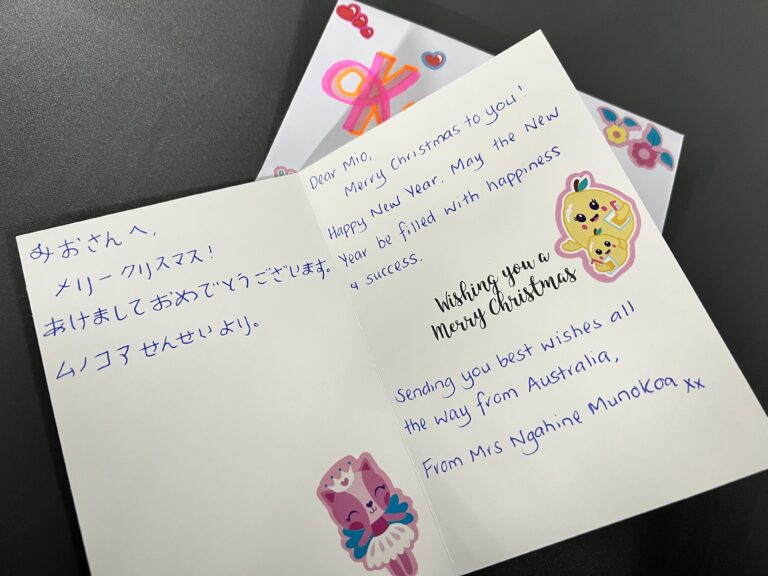 みおさんへ,
メリークリスマス!
あけましておめでとうございます。
ムノコア せんせい より。
Dear Mio,
Merry Christmas to you!
Happy New Year. May the New
Year be filled with happiness
& success.
Wishing you a
Merry Christmas
Sending you best wishes all
the way from Australia,
From Mrs Ngahine Munokoa xx